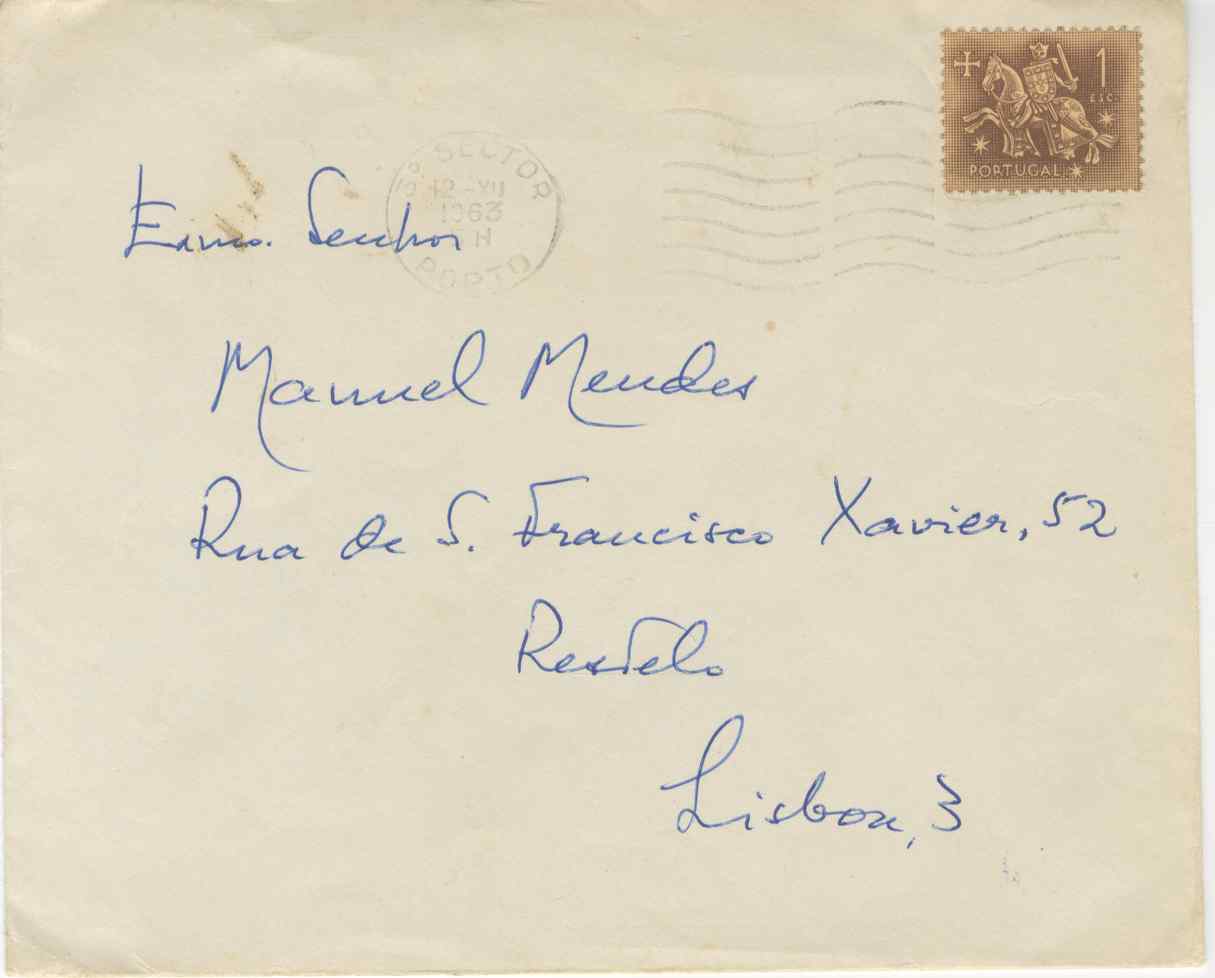 1
ESC.
PORTUGAL
SECTOR
12-XII
1963
H
PORTO
Exmo. Senhor
Manuel Mendes
Rua de S. Francisco Xavier, 52
Restelo
Lisboa, 3